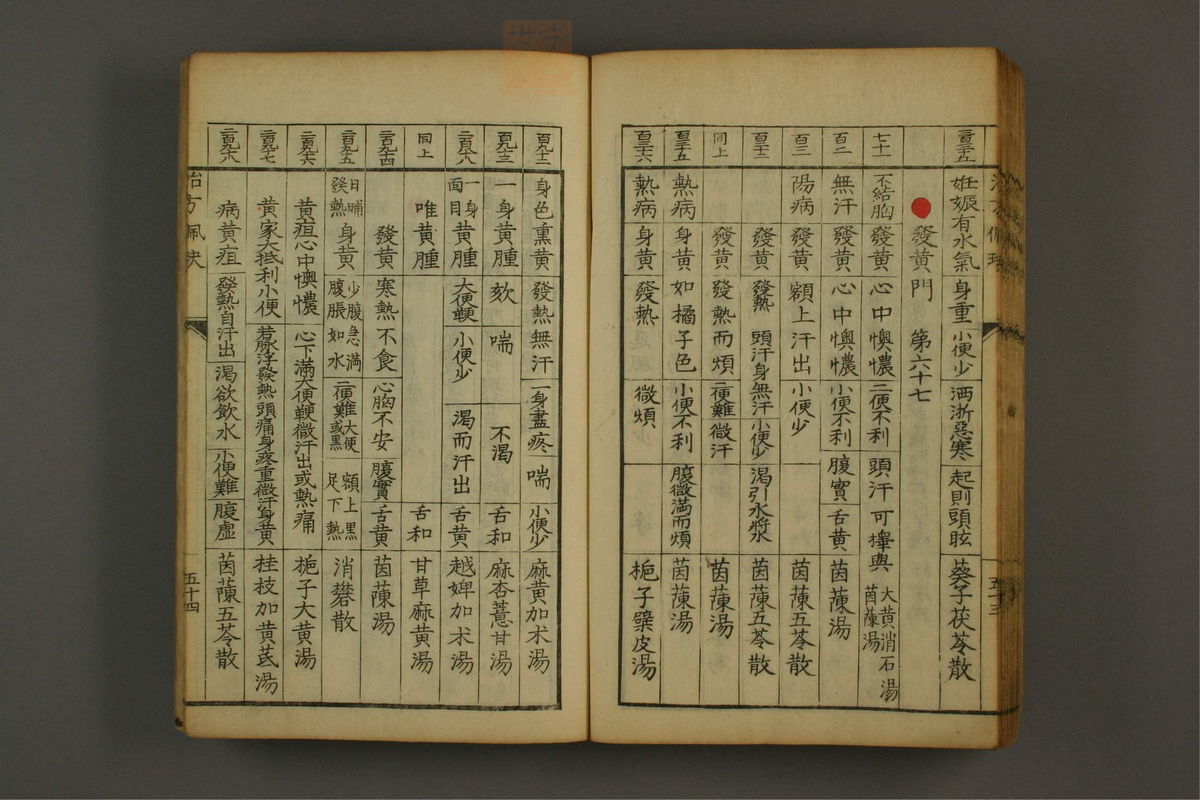 妊娠有水氣 身重 小便少 洒淅惡寒 起則頭眩 葵子茯苓散
發黃門 第六十七
七十一 不結胸 發黃 心中懊憹 二便不利 頭汗 可攆與 大黃消石湯 茵蔯湯
百二 無汗 發黃 心中懊憹 小便不利 腹實 舌黃 茵蔯湯
百三 陽病 發黃 額上汗出 小便少 茵蔯五苓散
百三十二 發黃 發熱 頭汗身無汗 小便少 渴引水漿水 茵蔯五苓散
同上 發黃 發熱而煩 二便難 微汗 茵蔯湯
百三十五 熱病 身黃 如橘子色 小便不利 腹微滿而煩 茵蔯湯
百三十六 熱病 身黃 發熱 微煩 梔子蘗皮湯
五十三
百九十二 身色熏黃 發熱無汗 一身盡疼 喘 小便少 麻黃加术湯
百九十三 一身黃腫 欬 喘 不渴 舌和 麻杏薏甘湯
一身面目黃腫 大便鞕 小便少 渴而汗出 舌黃 越婢加术湯
同上 唯黃腫 舌和 甘草麻黃湯
二百九十四 發黃 寒熱不食 心胸不安 腹實 舌黃 茵蔯湯
二百九十五 日晡發熱 身黃 少腹急滿 腹脹如水 二便難 大便或黑 額上黑 足下熱 消礬散
二百九十六 黃疸心中懊憹 心下滿大便鞕微汗出或熱痛 梔子大黃湯
二百九十七 黃家大抵利小便 若脉浮發熱頭痛身疼重微汗身黃 桂枝加黃芪湯
二百九十八 病黃疸 發熱自汗出 渴欲飲水 小便難 腹虛 茵蔯五苓散
治方佩玦
五十四